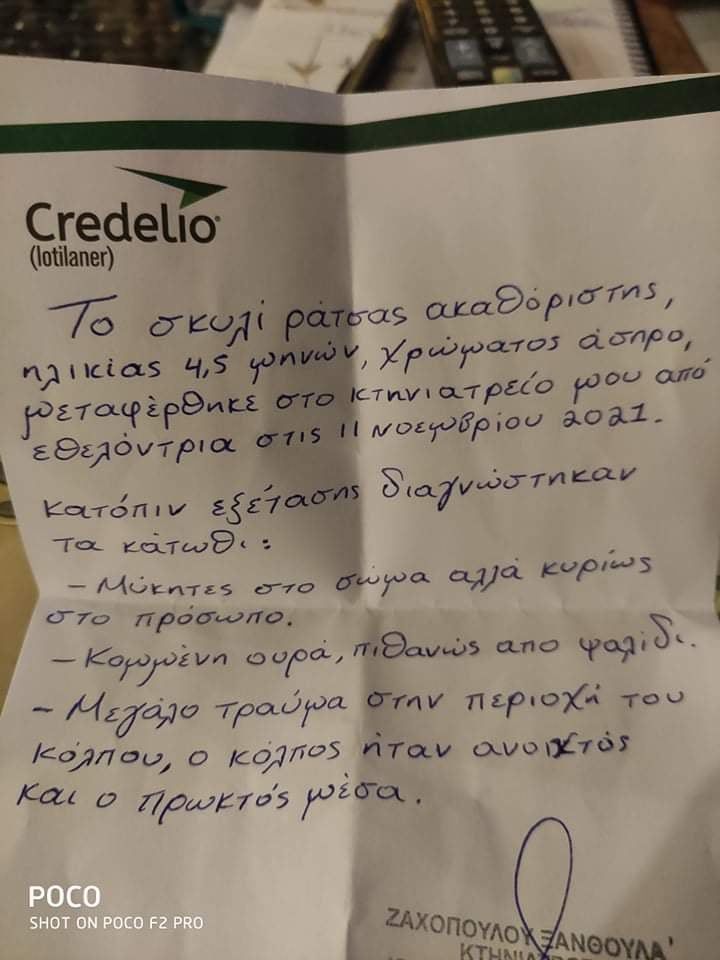 Credelio®
(lotilaner)
Το σκυλί ράτσας ακαθόριστης,
ηλικίας 4,5 μηνών, χρώματος άσπρο,
μεταφέρθηκε στο κτηνιατρείο μου από
εθελόντρια στις 11 Νοεμβρίου 2021.
Κατόπιν εξέτασης διαγνώστηκαν
τα κάτωθι:
- Μύκητες στο σώμα αλλά κυρίως
στο πρόσωπο.
- Κομμένη ουρά, πιθανώς απο ψαλίδι.
- Μεγάλο τραύμα στην περιοχή του
κόλπου, ο κόλπος ήταν ανοιχτός
και ο πρωκτός μέσα.
ΖΑΧΟΠΟΥΛΟΥ ΞΑΝΘΟΥΛΑ
POCO
SHOT ON POCO F2 PRO